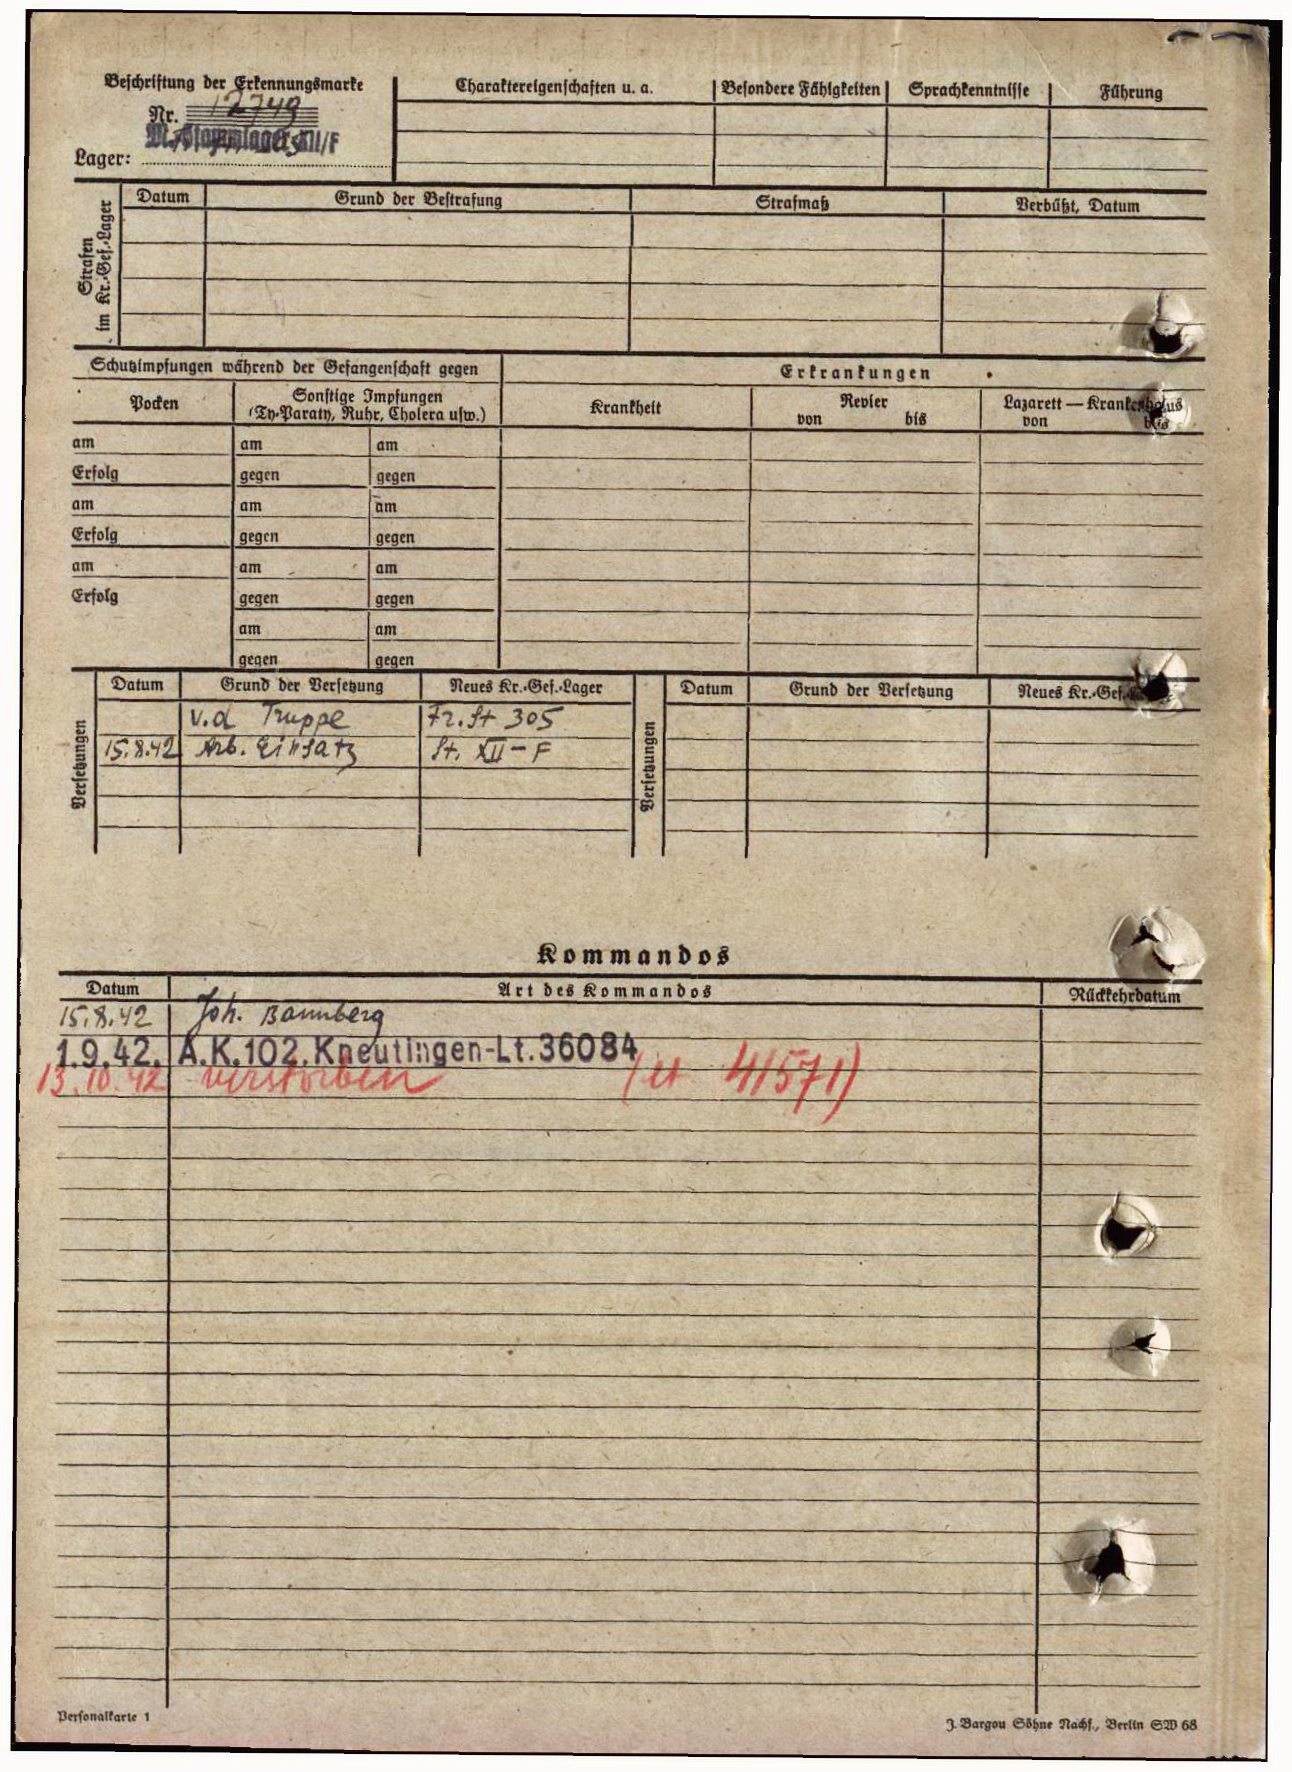 Beschriftung der Erkennungsmarke
Nr. 12749
Lager: M.-Stammlager XII/F
Charaktereigenschaften u. a. Besondere Fähigkeiten Sprachkenntnisse Führung
Strafen im Kr.-Gef.-Lager
Datum Grund der Bestrafung Strafmaß Verbüßt, Datum
Schutzimpfungen während der Gefangenschaft gegen Erkrankungen
Pocken Sonstige Impfungen Krankheit Revier Lazarett — Krankenhaus
(Ty-Paraty, Ruhr, Cholera usw.) von bis von bis
am am am
Erfolg gegen gegen
am am am
Erfolg gegen gegen
am am am
Erfolg gegen gegen
am am
gegen gegen
Versetzungen Versetzungen
Datum Grund der Versetzung Neues Kr.-Gef.-Lager Datum Grund der Versetzung Neues Kr.-Gef.-
v. d Truppe Fr. St 305
15.8.42 Arb. Einsatz St. XII-F
Kommandos
Datum Art des Kommandos Rückkehrdatum
15.8.42 Joh. Bannberg
1.9.42. A.K.102. Kneutingen-Lt.36084
13.10.42 verstorben (lt 41571)
Personalkarte 1 J. Bargou Söhne Nachf., Berlin SW 68